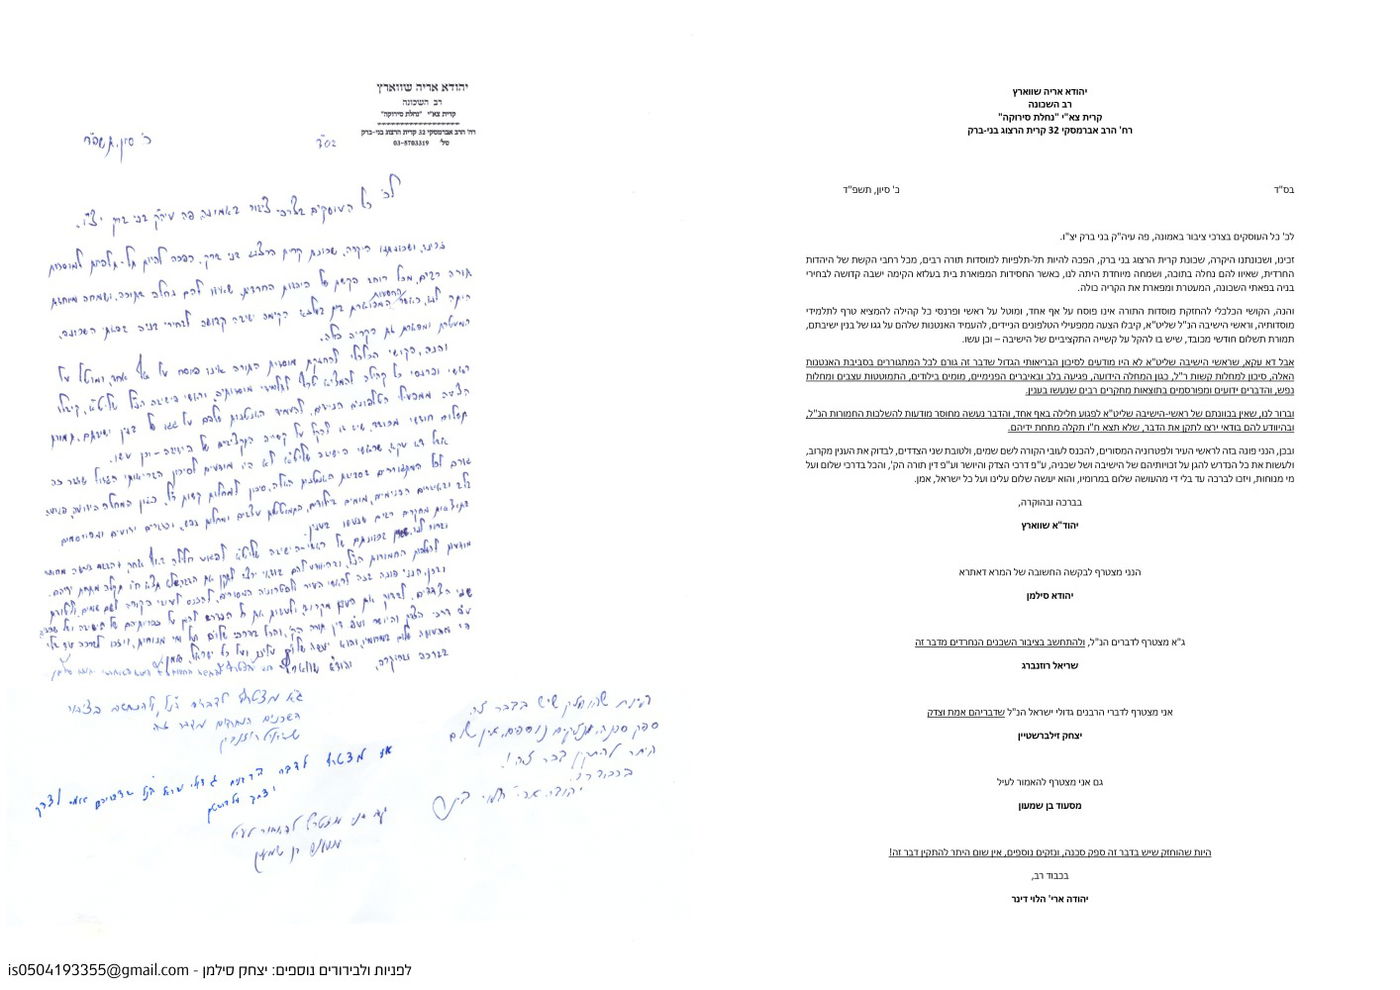 יהודא אריה שווארץ
רב השכונה
קרית צא"י "נחלת סירוקה"
רח' הרב אברמסקי 32 קרית הרצוג בני-ברק
בס"ד
כ' סיון, תשפ"ד
לכ' כל העוסקים בצרכי ציבור באמונה, פה עיה"ק בני ברק יצ"ו.
זכינו, ושכונתנו היקרה, שכונת קרית הרצוג בני ברק, הפכה להיות תל-תלפיות למוסדות תורה רבים, מכל רחבי הקשת של היהדות
החרדית, שאיוו להם נחלה בתוכה, ושמחה מיוחדת היתה לנו, כאשר החסידות המפוארת בית בעלזא הקימה ישבה קדושה לבחירי
בניה בפאתי השכונה, המעטרת ומפארת את הקריה כולה.
והנה, הקושי הכלכלי להחזקת מוסדות התורה אינו פוסח על אף אחד, ומוטל על ראשי ופרנסי כל קהילה להמציא טרף לתלמידי
מוסדותיה, וראשי הישיבה הנ"ל שליט"א, קיבלו הצעה ממפעילי הטלפונים הניידים, להעמיד האנטנות שלהם על גגו של בנין ישיבתם,
תמורת תשלום חודשי מכובד, שיש בו להקל על קשייה התקציביים של הישיבה – וכן עשו.
אבל דא עקא, שראשי הישיבה שליט"א לא היו מודעים לסיכון הבריאותי הגדול שדבר זה גורם לכל המתגוררים בסביבת האנטנות
האלה, סיכון למחלות קשות ר"ל, כגון המחלה הידועה, פגיעה בלב ובאיברים הפנימיים, מומים בילודים, התמוטטות עצבים ומחלות
נפש, והדברים ידועים ומפורסמים בתוצאות מחקרים רבים שנעשו בענין.
וברור לנו, שאין בכוונתם של ראשי-הישיבה שליט"א לפגוע חלילה באף אחד, והדבר נעשה מחוסר מודעות להשלכות החמורות הנ"ל,
ובהיוודע להם בודאי ירצו לתקן את הדבר, שלא תצא ח"ו תקלה מתחת ידיהם.
ובכן, הנני פונה בזה לראשי העיר ולפטרוניה המסורים, להכנס לעובי הקורה לשם שמים, ולטובת שני הצדדים, לבדוק את הענין מקרוב,
ולעשות את כל הנדרש להגן על זכויותיהם של הישיבה ושל שכניה, ע"פ דרכי הצדק והיושר וע"פ דין תורה הק', והכל בדרכי שלום ועל
מי מנוחות, ויזכו לברכה עד בלי די מהעושה שלום במרומיו, והוא יעשה שלום עלינו ועל כל ישראל, אמן.
בברכה ובהוקרה,
יהוד"א שווארץ
הנני מצטרף לבקשה החשובה של המרא דאתרא
יהודא סילמן
ג"א מצטרף לדברים הנ"ל, ולהתחשב בציבור השכנים הנחרדים מדבר זה
שריאל רוזנברג
אני מצטרף לדברי הרבנים גדולי ישראל הנ"ל שדבריהם אמת וצדק
יצחק זילברשטיין
גם אני מצטרף להאמור לעיל
מסעוד בן שמעון
היות שהוחזק שיש בדבר זה ספק סכנה, ונזקים נוספים, אין שום היתר להתקין דבר זה!
בכבוד רב,
יהודה ארי' הלוי דינר
יהודא אריה שווארץ
רב השכונה
קרית צא"י "נחלת סירוקה"
רח' הרב אברמסקי 32 קרית הרצוג בני-ברק
טל' 03-5703319
בס"ד
כ' סיון, תשפ"ד
לכ' כל העוסקים בצרכי ציבור באמונה, פה עיה"ק בני ברק יצ"ו.
זכינו, ושכונתנו היקרה, שכונת קרית הרצוג בני ברק, הפכה להיות תל-תלפיות למוסדות
תורה רבים, מכל רוחב הקשת של היהדות החרדית, שאיוו להם נחלה בתוכה, ושמחה מיוחדת
היתה לנו, כאשר החסידות המפוארת בית בעלזא הקימה ישיבה קדושה לבחירי בניה בפאתי השכונה,
המעטרת ומפארת את הקריה כולה.
והנה, הקושי הכלכלי להחזקת מוסדות התורה אינו פוסח על אף אחד, ומוטל על
ראשי ופרנסי כל קהילה להמציא טרף לתלמידי מוסדותיה, וראשי הישיבה הנ"ל שליט"א, קיבלו
הצעה ממפעילי הטלפונים הניידים, להעמיד האנטנות שלהם על גגו של בנין ישיבתם, תמורת
תשלום חודשי מכובד, שיש בו להקל על קשייה התקציביים של הישיבה - וכן עשו.
אבל דא עקא, שראשי הישיבה שליט"א לא היו מודעים לסיכון הבריאותי הגדול שדבר זה
גורם לכל המתגוררים בסביבת האנטנות האלה, סיכון למחלות קשות ר"ל, כגון המחלה הידועה, פגיעה
בלב ובאיברים הפנימיים, מומים בילודים, התמוטטות עצבים ומחלות נפש, והדברים ידועים ומפורסמים
בתוצאות מחקרים רבים שנעשו בענין.
וברור לנו, שאין בכוונתם של ראשי-הישיבה שליט"א לפגוע חלילה באף אחד, והדבר נעשה מחוסר
מודעות להשלכות החמורות הנ"ל, ובהיוודע להם בודאי ירצו לתקן את הדבר, שלא תצא ח"ו תקלה מתחת ידיהם.
ובכן, הנני פונה בזה לראשי העיר ולפטרוניה המסורים, להכנס לעובי הקורה לשם שמים, ולטובת
שני הצדדים, לבדוק את הענין מקרוב, ולעשות את כל הנדרש להגן על זכויותיהם של הישיבה ושל שכניה,
ע"פ דרכי הצדק והיושר וע"פ דין תורה הק', והכל בדרכי שלום ועל מי מנוחות, ויזכו לברכה עד בלי
די מהעושה שלום במרומיו, והוא יעשה שלום עלינו ועל כל ישראל, אמן.
בברכה ובהוקרה, יהוד"א שווארץ
הנני מצטרף לבקשה החשובה של המרא דאתרא יהודא סילמן
ג"א מצטרף לדברים הנ"ל, ולהתחשב בציבור
השכנים הנחרדים מדבר זה
שריאל רוזנברג
היות שהוחזק שיש בדבר זה
ספק סכנה, ונזקים נוספים, אין שום
היתר להתקין דבר זה!
בכבוד רב,
יהודה ארי' הלוי דינר
אני מצטרף לדברי הרבנים גדולי ישראל הנ"ל שדבריהם אמת וצדק
יצחק זילברשטיין
גם אני מצטרף להאמור לעיל
מסעוד בן שמעון
לפניות ולבירורים נוספים: יצחק סילמן - is0504193355@gmail.com